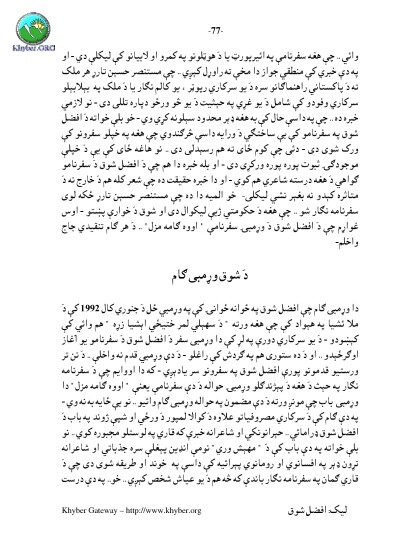 -77-
Khyber.ORG
وائي .. چې هغه سفرنامې په ائيرپورټ يا د هوټلونو په کمرو او لابيانو کې ليکلې دي - او
په دې خبرې کې منطقي جواز دا مخې ته راوړل کېږي .. چې مستنصر حسين تارړ هر ملک
ته د پاکستاني راهنماګانو سره د يو سرکاري رپوټر ، يو کالم نګار يا د ملک په بېلابېلو
سرکاري وفودو کې شامل د يو غړي په حيثيت د يو څو ورځو دپاره تللی دی - نو لازمي
خبره ده .. چې په داسې حال کې به هغه ډېر محدود سېلونه کړي وي - خو بلې خوا ته د افضل
شوق په سفرنامو کې بې ساختګي د ورايه داسې څرګندوي چې هغه په خپلو سفرونو کې
ورک شوی دی - دئې چې کوم ځای ته هم رسېدلی دی .. نو هاغه ځای کې يې د خپلې
موجودګۍ ثبوت پوره پوره ورکړی دی - او بله خبره دا هم چې د افضل شوق د سفرنامو
ګواهي د هغه درسته شاعري هم کوي - او دا خبره حقيقت ده چې شعر کله هم د خارج نه د
متاثره کېدو نه بغير نشي ليکلی- خو المیه دا ده چې مستنصر حسين تارړ ځکه لوی
سفرنامه نګار شو .. چې هغه د حکومتي ژبې ليکوال دی او شوق د خوارې پښتو - اوس
غواړم چې د افضل شوق د وړمبۍ سفرنامې " اووه ګامه مزل" .. د هر ګام تنقيدي جاج
واخلم-
د شوق وړمبی ګام
دا وړمبی ګام چې افضل شوق په ځوانه ځوانۍ کې په وړمبي ځل د جنوري کال 1992 کې د
ملا ئشيا په هېواد کې چې هغه ورته " د سهېلي لمر ختيځي ايشيا زړه " هم وائي کې
کېښودو - د يو سرکاري دورې په لړ کې دا وړمبۍ سفر د افضل شوق د سفرنامو يو آغاز
اوګرځېدو .. او د ده ستورې هم په ګردش کې راغلو - د دې وړمبي قدم نه واخلې .. د نن تر
ورستيو قدمونو پورې افضل شوق په سفرونو سر يادېږي - که دا اووايم چې د سفرنامه
نګار په حيث د هغه د پېژندګلو وړمبۍ حواله د دې سفرنامې يعني " اووه ګامه مزل" دا
وړمبۍ باب چې مونږ ورته د دې مضمون په حواله وړمبی ګام وائيو .. نو بې ځايه به نه وي-
په دې ګام کې د سرکاري مصروفياتو علاوه د کوالا لمپور د ورځې او شپې ژوند په باب د
افضل شوق ډراماتي .. حيرانونکي او شاعرانه خبرې که قاري په لوستلو مجبوره کوي .. نو
بلې خوا ته په دې باب کې د " مهېش وري" نومې انډين پېغلې سره جذباتي او شاعرانه
تړون ډېر په افسانوي او رومانوي پېرائيه کې داسې په خوند او طريقه شوی دی چې د
قاري ګمان په سفرنامه نګار باندې که څه هم د يو عياش شخص کېږي .. خو .. په دې درست
Khyber Gateway – http://www.khyber.org
ليک: افضل شوق